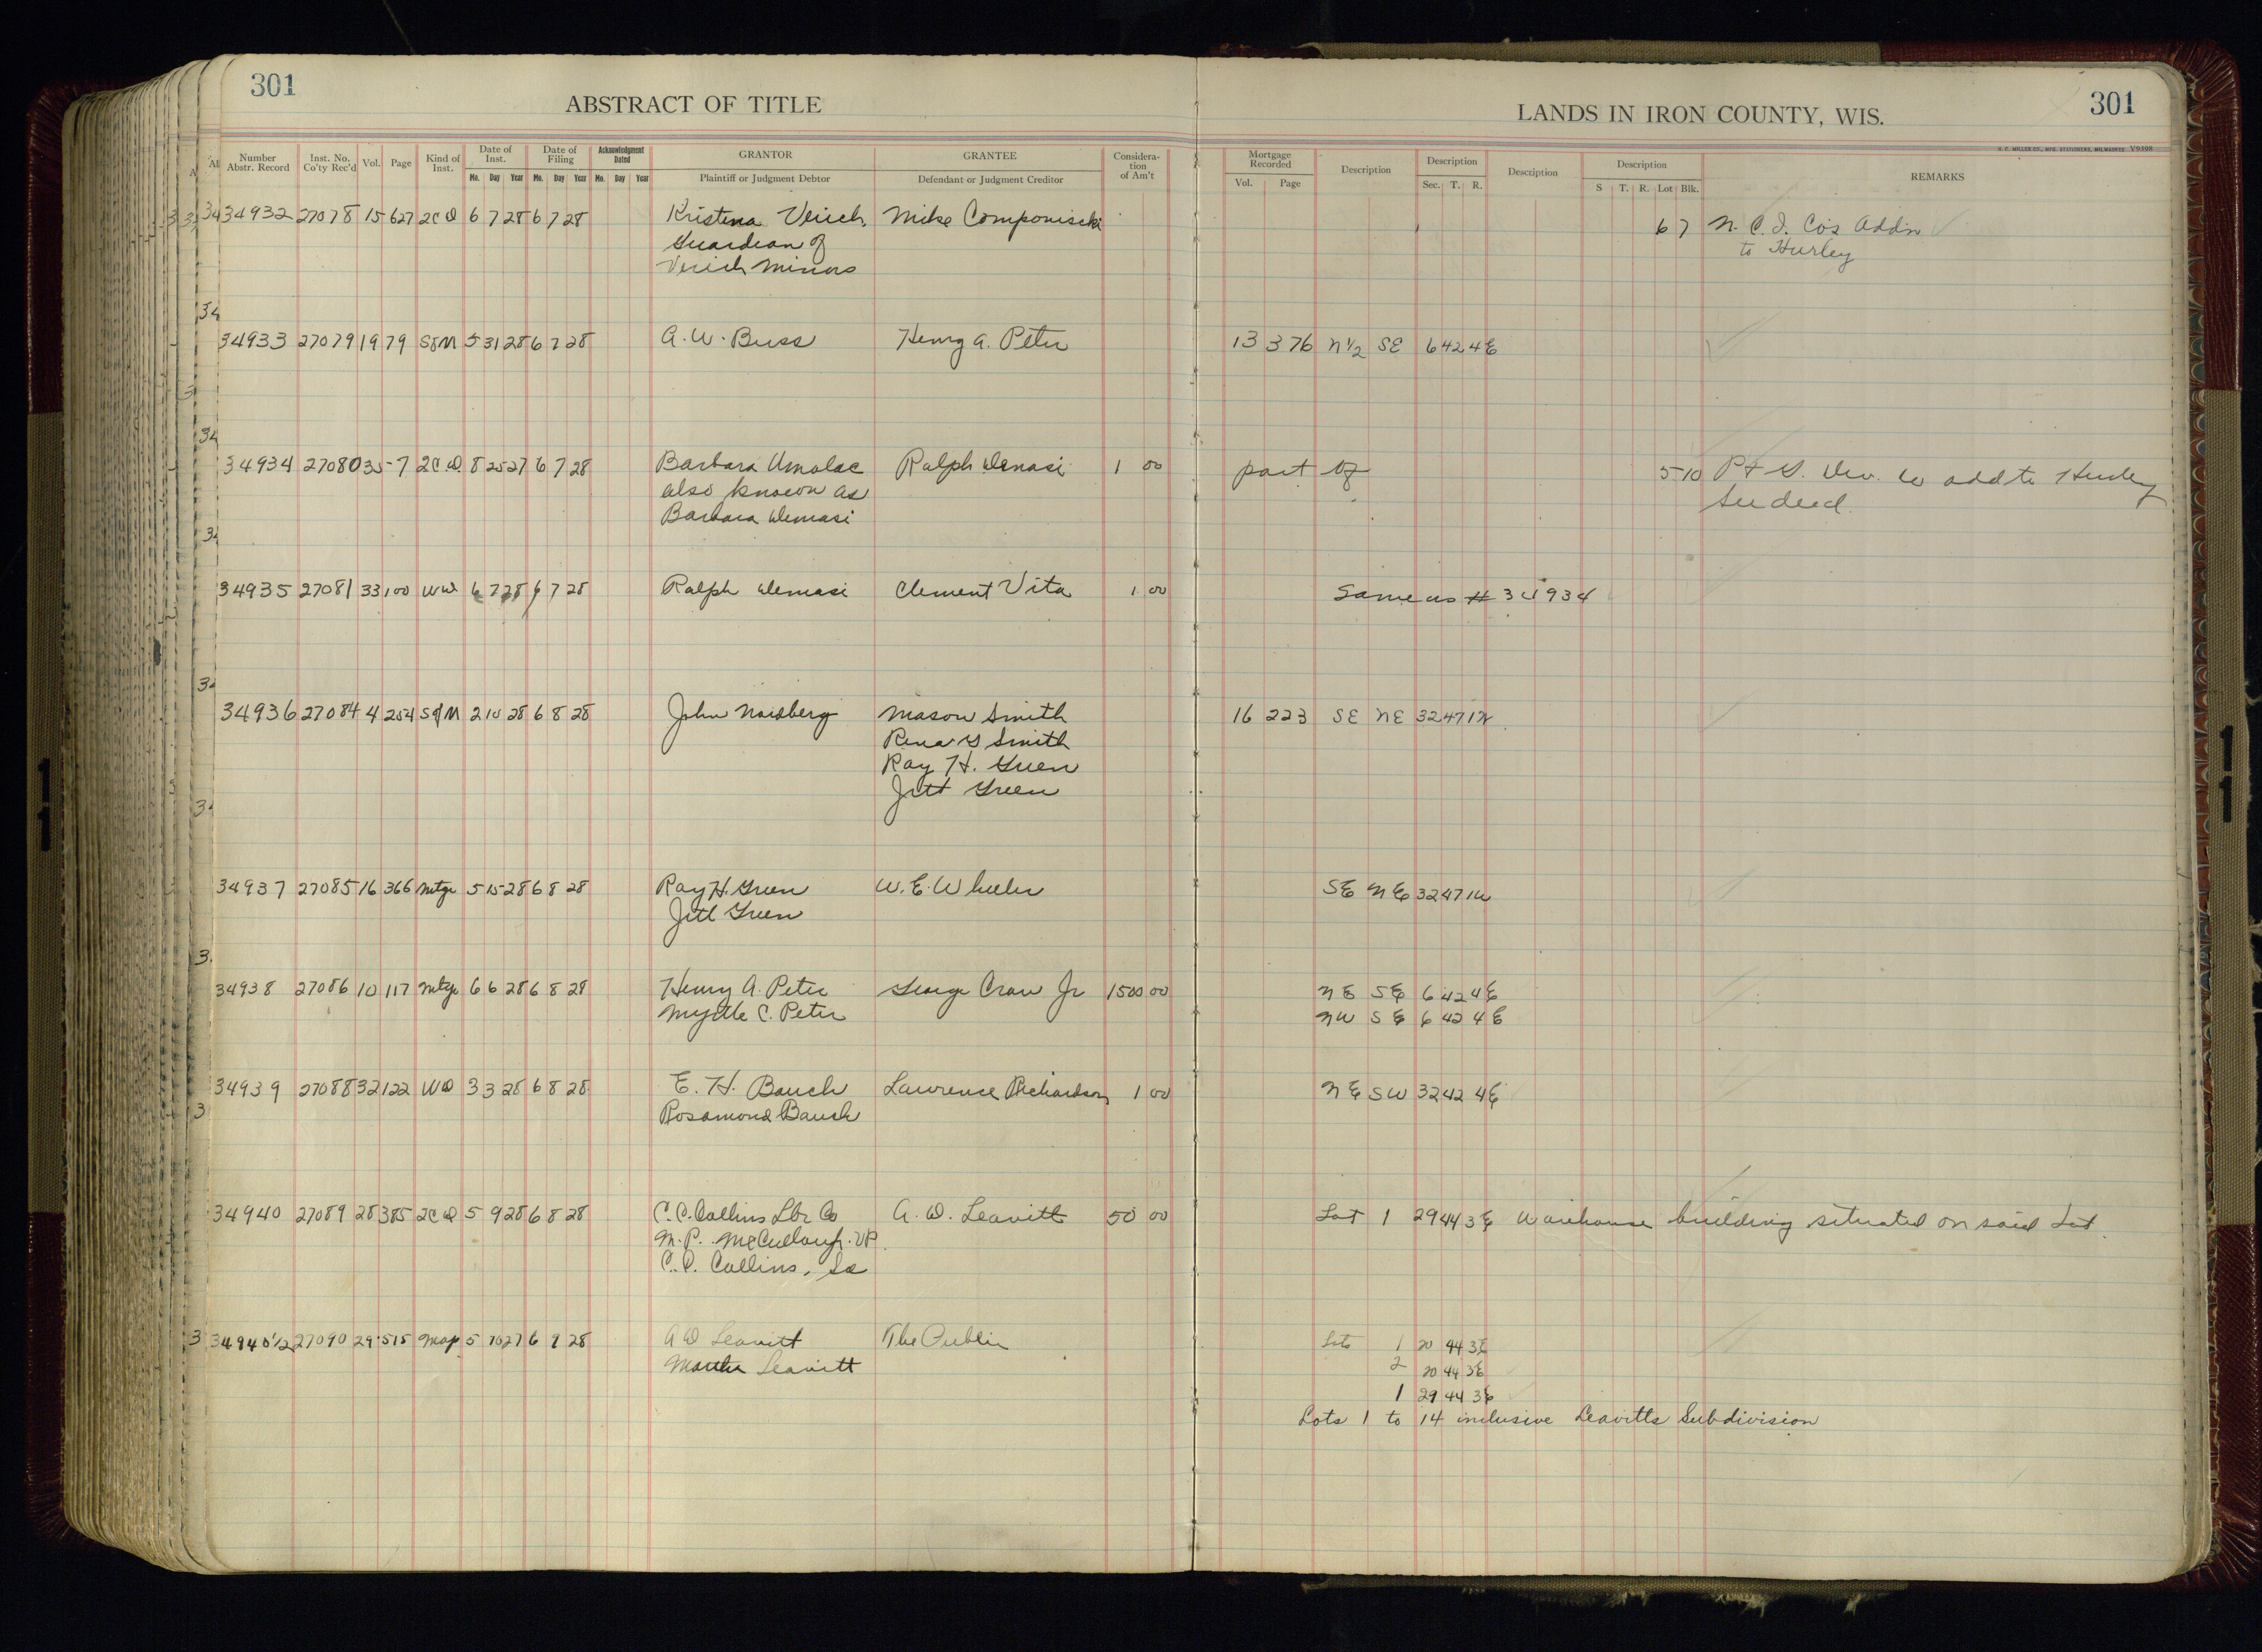 301
ABSTRACT OF TITLE
LANDS IN IRON COUNTY, WIS.
301
H. C. MILLER CO., MFG. STATIONERS, MILWAUKEE Y9398
Number Abstr. Record Inst. No. Co'ty Rec'd Vol. Page Kind of Inst. Date of Inst. Mo. Day Year Date of Filing Mo. Day Year Acknowledgment Dated Mo. Day Year GRANTOR Plaintiff or Judgment Debtor GRANTEE Defendant or Judgment Creditor Considera-tion of Am't Mortgage Recorded Vol. Page Description Description Sec. T. R. Description Description S T. R. Lot Blk. REMARKS
34932 27078 15 627 2CD 6 7 28 6 7 28 Kristena Mike 6 7 N. C. I. Co's Addn
Guardian of to Hurley
Minors
34933 27079 19 79 SofM 5 31 28 6 7 28 A. W. Buss Henry A. Peter 13 376 N 1/2 SE 6 42 4E
34934 27080 35 7 2CD 8 25 27 6 7 28 Barbara Ralph Demasi 1 00 part of 5 10 add to Hurley
also known as See deed.
Barbara Demasi
34935 27081 33 100 WD 6 7 28 6 7 28 Ralph Demasi Clement Vita 1 00 Same as # 34934
34936 27084 4 254 SofM 2 10 28 6 8 28 John Mason Smith 16 223 SE NE 32 47 1W
Rena G Smith
Ray H. Green
Jett Green
34937 27085 16 366 Mtge 5 15 28 6 8 28 Ray H. Green W. E. Wheeler SE NE 32 47 1W
Jett Green
34938 27086 10 117 Mtge 6 6 28 6 8 28 Henry A. Peter George Crow Jr 1500 00 NE SE 6 42 4E
Myrtle C. Peter NW SE 6 42 4E
34939 27088 32 122 WD 3 3 28 6 8 28 E. H. Bauch Lawrence Richardson 1 00 NE SW 32 42 4E
Rosamond Bauch
34940 27089 28 385 2CD 5 9 28 6 8 28 C. C. Collins Lbr Co A. D. Leavitt 50 00 Lot 1 29 44 3E Warehouse building situated on said Lot.
M. P. McCullough. VP.
C. C. Collins, Sec
34940 1/2 27090 29 515 Map 5 10 27 6 9 28 A D Leavitt The Public Lots 1 20 44 3E
Martha Leavitt 2 20 44 3E
1 29 44 3E
Lots 1 to 14 inclusive Leavitts Subdivision